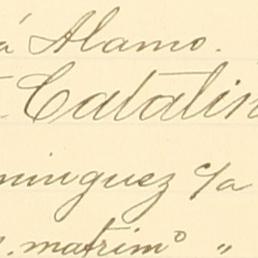 á Alamo.
Catalin
minguez c/a
. matrimº "